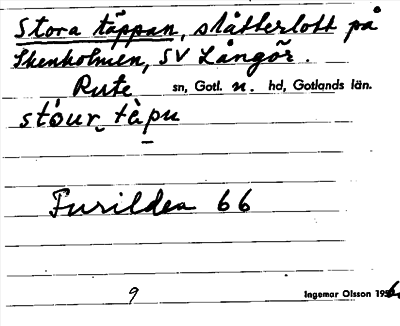 Stora täppan, slåtterlott på
Skenholmen, SV Långör.
Rute sn, Gotl. n. hd, Gotlands län.
stóur tàpu
Furilden 66
9
Ingemar Olsson 195